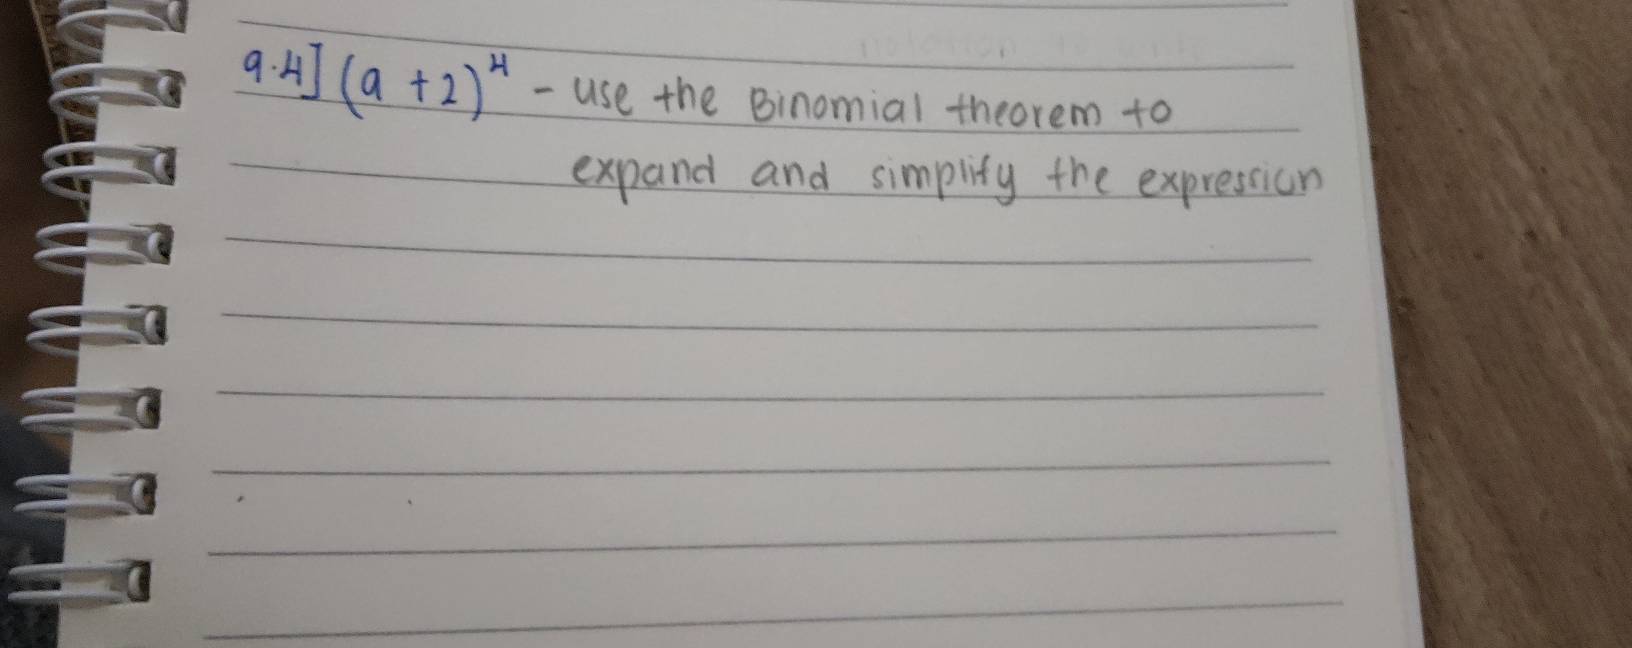 9.4] (a + 2)⁴ - use the Binomial theorem to
expand and simplify the expression